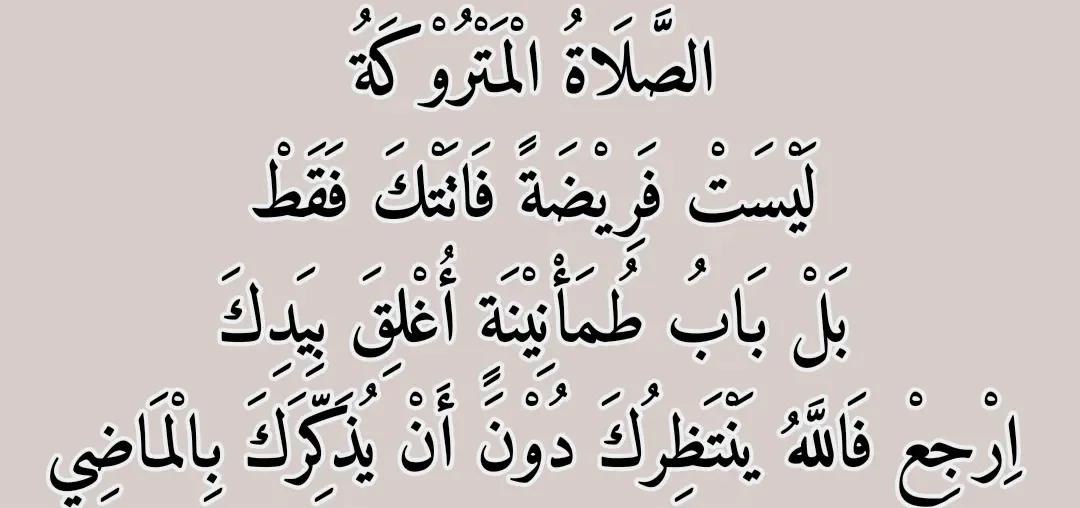 الصَّلَاةُ الْمَتْرُوْكَةُ
لَيْسَتْ فَرِيْضَةً فَاتَتْكَ فَقَطْ
بَلْ بَابُ طُمَأْنِيْنَةٍ أُغْلِقَ بِيَدِكَ
اِرْجِعْ فَاللَّهُ يَنْتَظِرُكَ دُوْنَ أَنْ يُذَكِّرَكَ بِالْمَاضِي